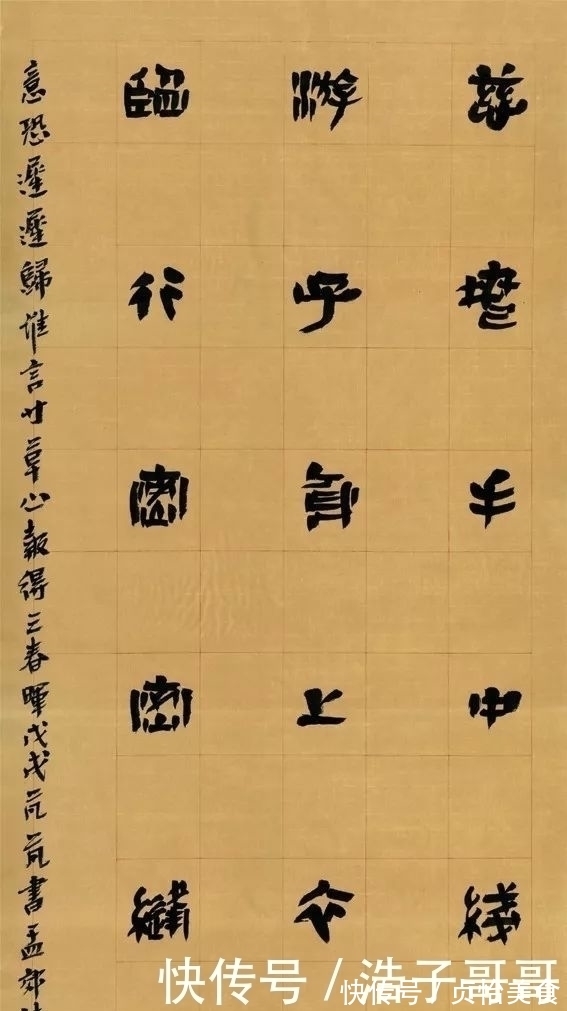 慈母手中綫
游子身上衣
臨行密密縫
意恐遲遲歸誰言寸草心報得三春暉戊戌芃芃書孟郊
快传号／浩子哥哥
快传号/贞恰美食